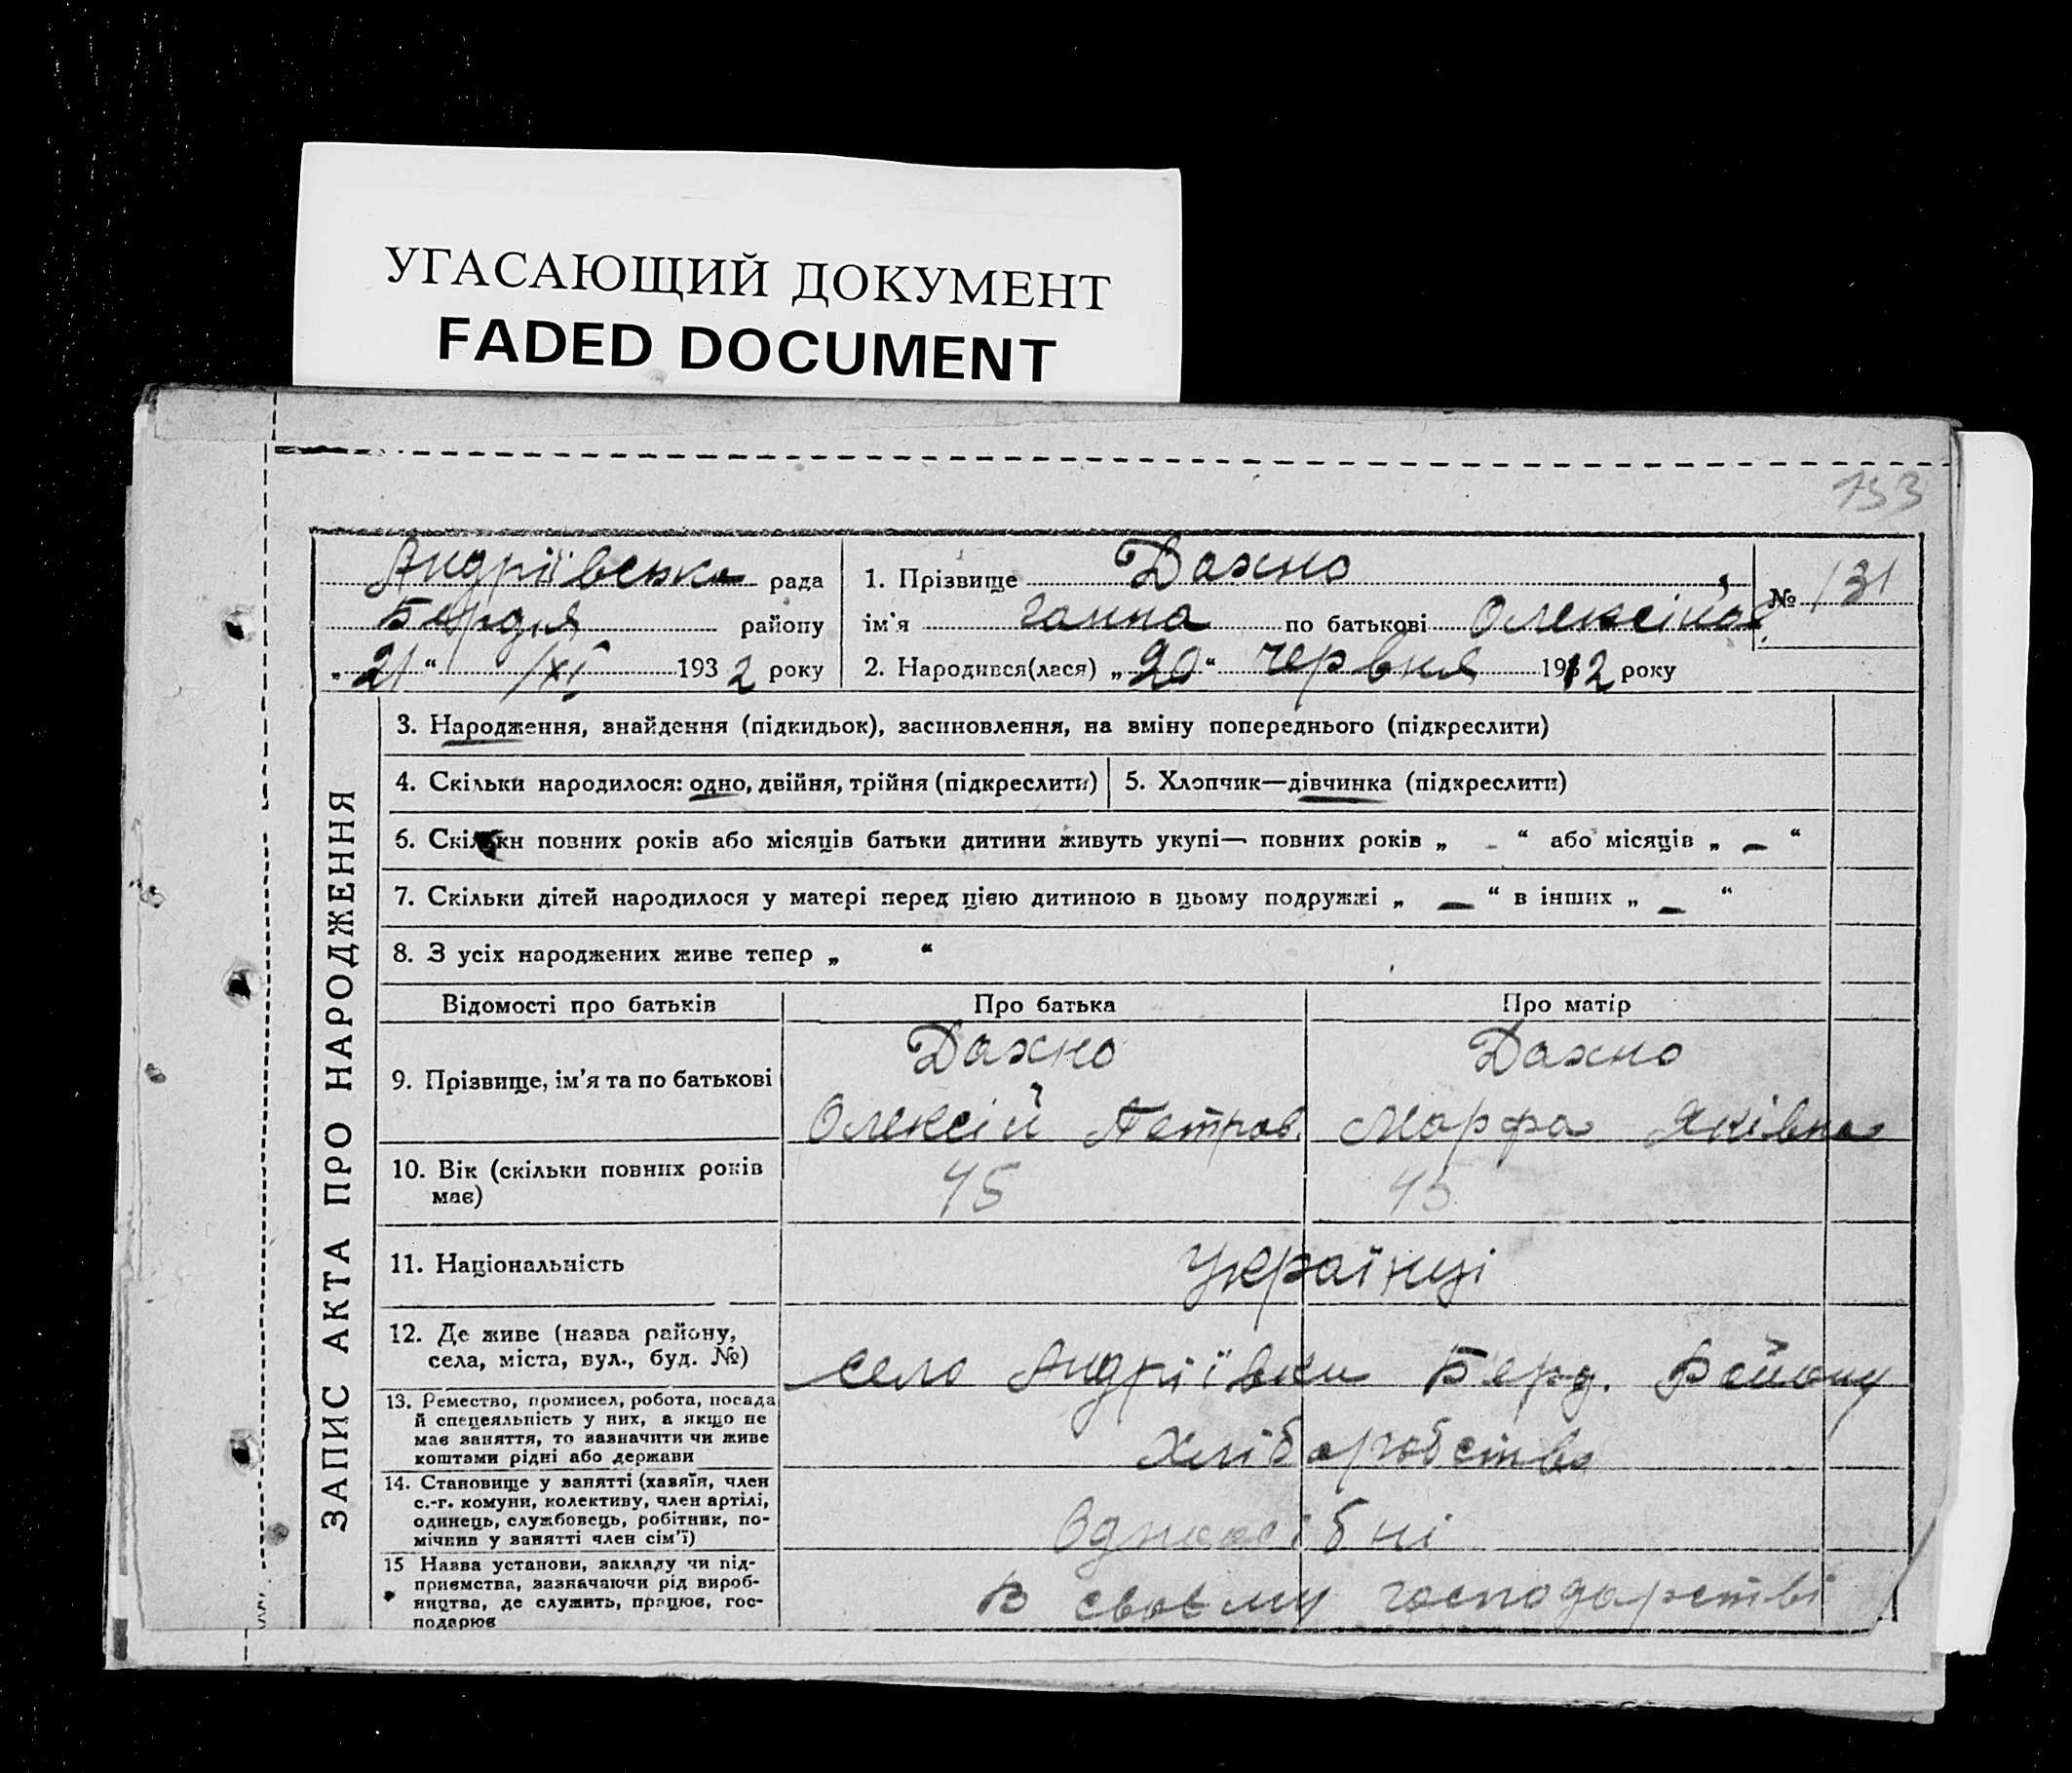 УГАСАЮЩИЙ ДОКУМЕНТ
FADED DOCUMENT
153
Андріївська рада
Бердян району
„21“ /XI 1932 року
1. Прізвище Дахно
ім'я Ганна по батькові Олексійов
№ 131
2. Народився(лася) „20“ червня 1912 року
ЗАПИС АКТА ПРО НАРОДЖЕННЯ
3. Народження, знайдення (підкидьок), засиновлення, на зміну попереднього (підкреслити)
4. Скільки народилося: одно, двійня, трійня (підкреслити)
5. Хлопчик—дівчинка (підкреслити)
6. Скільки повних років або місяців батьки дитини живуть укупі— повних років „ - “ або місяців „ — “
7. Скільки дітей народилося у матері перед цією дитиною в цьому подружжі „ — “ в інших „ — “
8. З усіх народжених живе тепер „ “
Відомості про батьків
Про батька
Про матір
9. Прізвище, ім'я та по батькові
Дахно
Олексій Петров.
Дахно
Марфа Яківна
10. Вік (скільки повних років
має)
45
45
11. Національність
Українці
12. Де живе (назва району,
села, міста, вул., буд. №)
село Андріївки Берд. Району
13. Ремество, промисел, робота, посада
й спецеяльність у них, а якщо не
має заняття, то зазначити чи живе
коштами рідні або держави
Хліборобство
14. Становище у занятті (хазяїн, член
с.-г. комуни, колективу, член артілі,
одинець, службовець, робітник, по-
мічник у занятті член сім'ї)
Одноосібні
15 Назва установи, закладу чи під-
приємства, зазначаючи рід вироб-
ництва, де служить, працює, гос-
подарює
В своєму господарстві